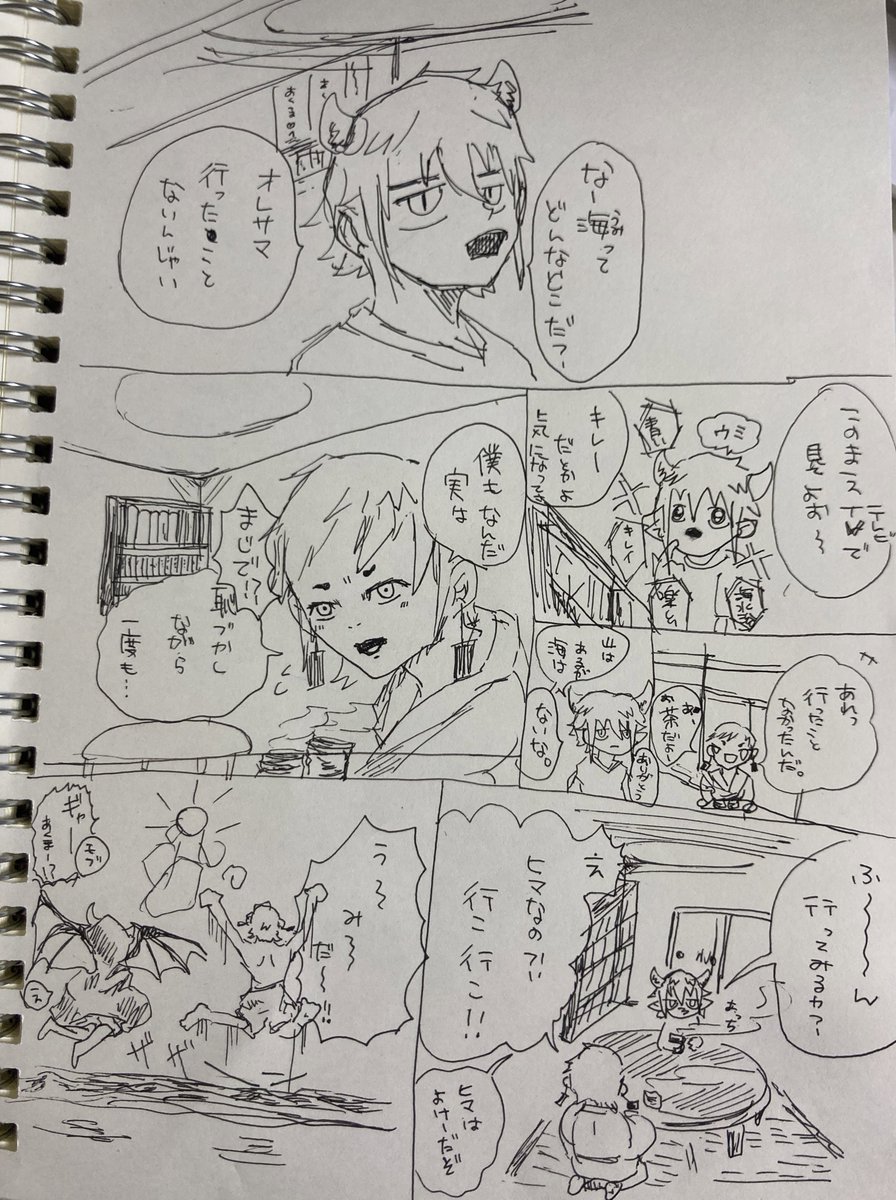 なー海って
うみ
どんなとこだっ～
オレサマ
行ったこと
ないんじゃい
このまえ
テレビ
で
見よお～
ウミ
青い
キレイ
楽しい
キレー
だとかよ
気になってる
あれっ
行ったこと
なかったんだ。
あ、
お茶だよー
ありがとう
山は
あるが
海は
ないな。
僕もなんだ
実は
まじで!?
恥づかし
ながら
一度も…
ふ～～～ん
行ってみるか？
あっち
え
ヒマなの!?
行こ行こ!!
ヒマは
よけーだぞ
う～
み～
だ～!!
ギャー
あくまー!?
モブ
え
ザ
ザ